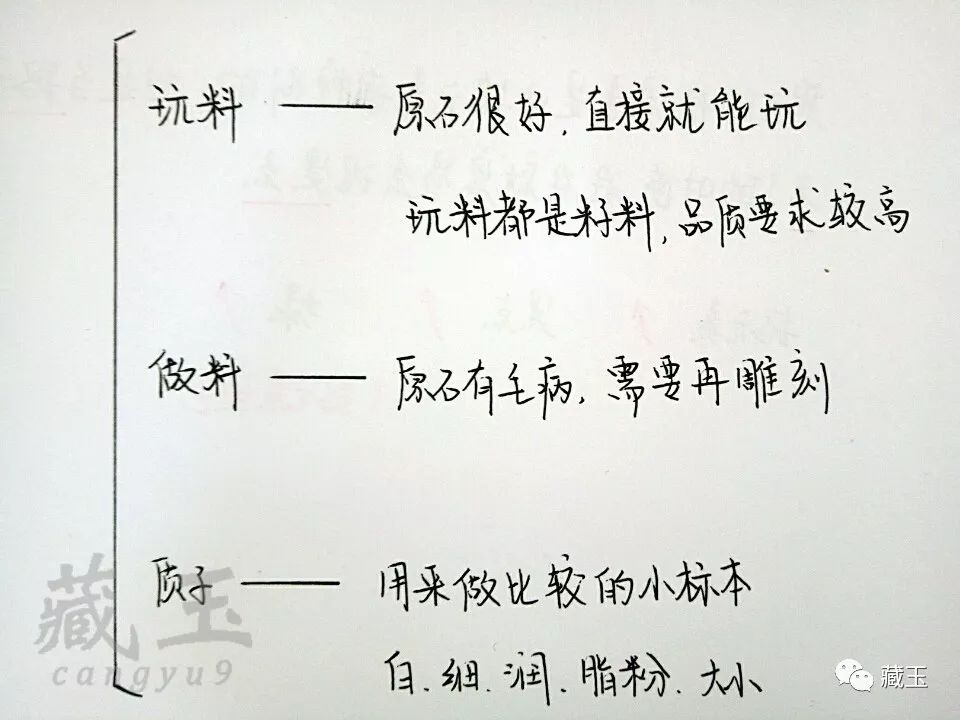 玩料 —— 原石很好,直接就能玩
玩料都是籽料,品质要求较高
做料 —— 原石有毛病,需要再雕刻
质子 —— 用来做比较的小标本
白、细、润、脂粉、大小
藏玉
cangyu9
藏玉